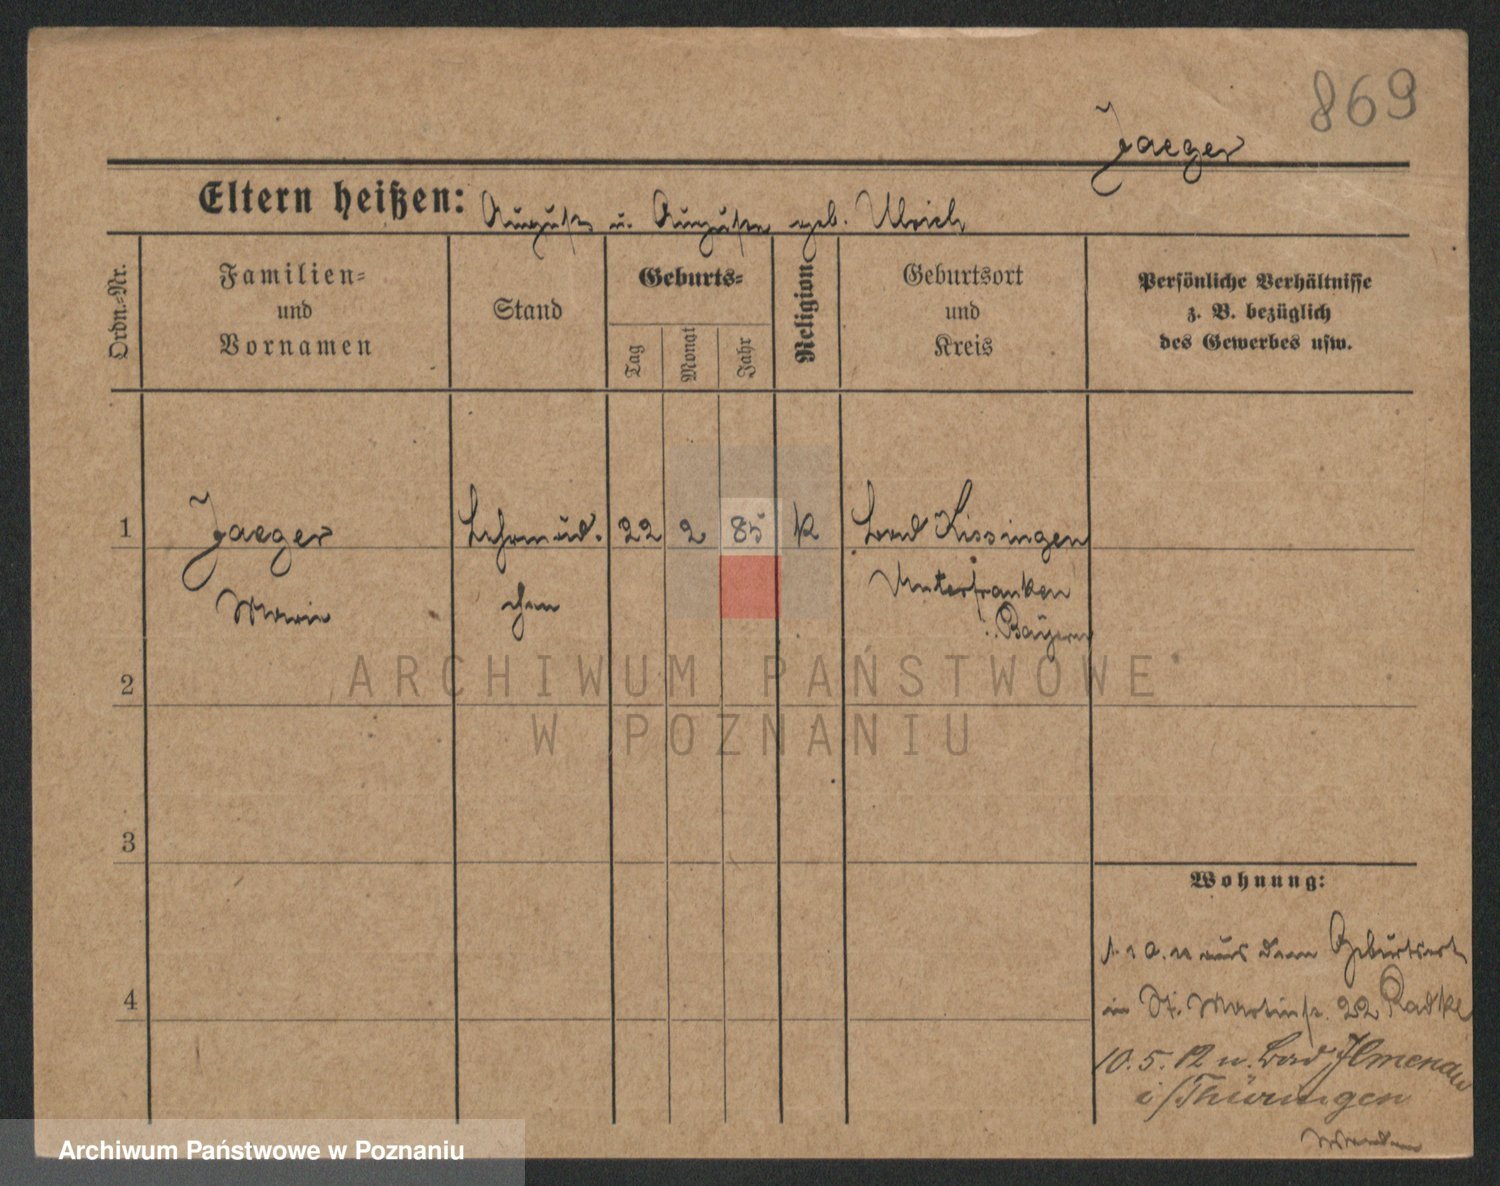 869
Jaeger
Eltern heißen: August u. Auguste geb. Ulrich
Ordn.-Nr.
Familien-
und
Vornamen
Stand
Geburts-
Tag
Monat
Jahr
Religion
Geburtsort
und
Kreis
Persönliche Verhältnisse
z. B. bezüglich
des Gewerbes usw.
1 Jaeger Lehrmäd. 22 2 85 k Bad Kissingen
Marie chen Unterfranken
Bayern
2
ARCHIWUM PAŃSTWOWE
W POZNANIU
3
Wohnung:
aus dem Geburtsort
in St. Martinstr. 22 Radke
4
10.5.12 n. Bad Ilmenau
i/Thüringen
Archiwum Państwowe w Poznaniu